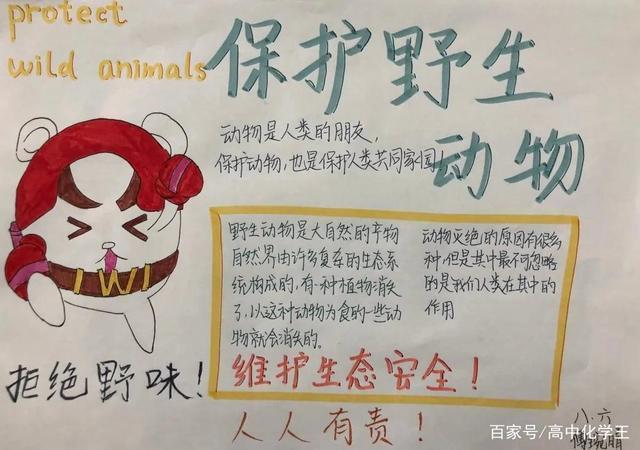 protect
wild animals
保护野生
动物
动物是人类的朋友,
保护动物,也是保护人类共同家园!
野生动物是大自然的产物
自然界由许多复杂的生态系
统构成的,有一种植物消失
了,以这种动物为食的一些动
物就会消失的。
动物灭绝的原因有很多
种,但是其中最不可忽略
的是我们人类在其中的
作用
维护生态安全!
人人有责!
拒绝野味!
八.六
百家号/高中化学王